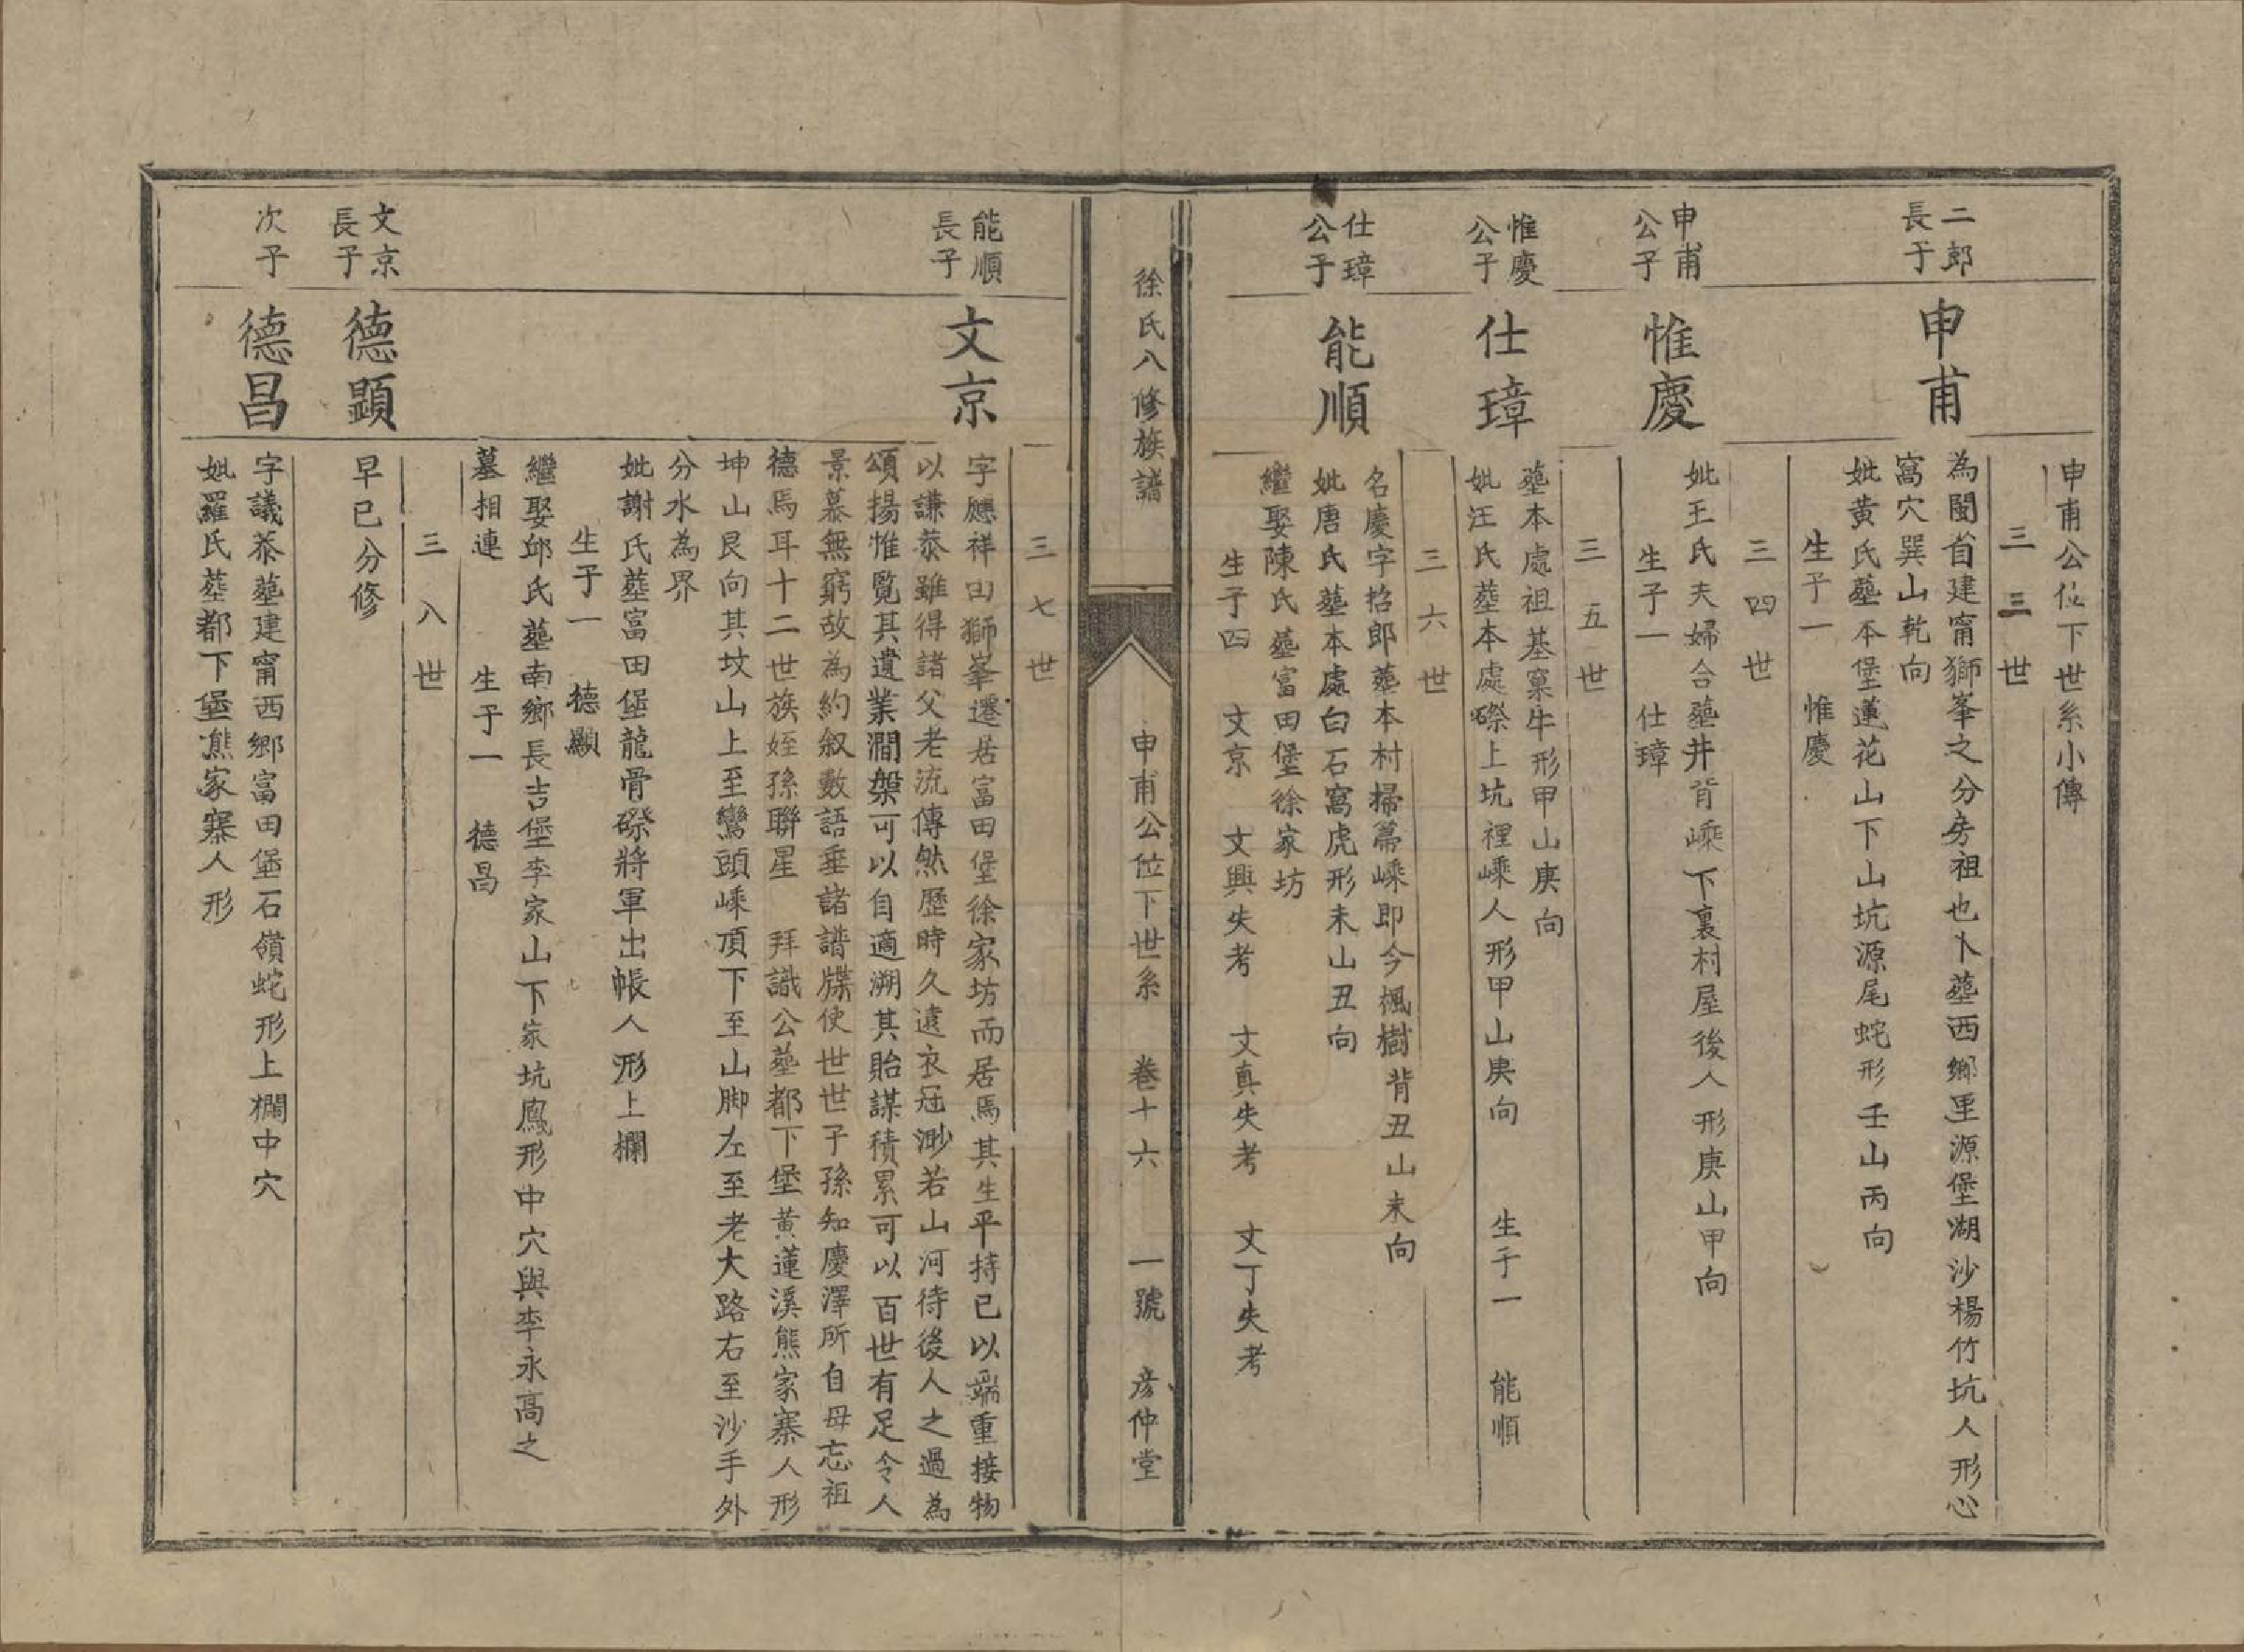 申甫公位下世系小傳
三三世
二郎長子
申甫
為閩省建甯獅峯之分房祖也卜塟西鄉里源堡湖沙楊竹坑人形心
窩穴巽山乾向
妣黄氏塟本堡蓮花山下山坑源尾蛇形壬山丙向
生子一 惟慶
三四世
申甫公子
惟慶
妣王氏夫婦合塟井背嵊下裏村屋後人形庚山甲向
生子一 仕璋
三五世
惟慶公子
仕璋
塟本處祖基窠牛形甲山庚向
妣汪氏塟本處磜上坑裡嵊人形甲山庚向 生子一 能順
三六世
仕璋公子
能順
名慶字招郎塟本村掃箒嵊即今楓樹背丑山未向
妣唐氏塟本處白石窩虎形未山丑向
繼娶陳氏塟富田堡徐家坊
生子四 文京 文興失考 文真失考 文丁失考
徐氏八修族譜
申甫公位下世系 卷十六 一號 彦仲堂
三七世
能順長子
文京
字應祥由獅峯遷居富田堡徐家坊而居焉其生平持已以端重接物
以謙恭雖得諸父老流傳然歷時久遠衣冠渺若山河待後人之過為
頌揚惟覧其遺業澗架可以自適溯其貽謀積累可以百世有足令人
景慕無窮故為約叙數語垂諸譜牒使世世子孫知慶澤所自毋忘祖
德焉耳十二世族姪孫聯星 拜識公塟都下堡黄蓮溪熊家寨人形
坤山艮向其坟山上至鸞頭嵊頂下至山脚左至老大路右至沙手外
分水為界
妣謝氏塟富田堡龍骨磜將軍出帳人形上欄
生子一 德顯
繼娶邱氏塟南鄉長吉堡李家山下家坑鳳形中穴與李永高之
墓相連 生子一 德昌
三八世
文京長子
德顯
早已分修
次子
德昌
字議恭塟建甯西鄉富田堡石嶺蛇形上欄中穴
妣羅氏塟都下堡熊家寨人形